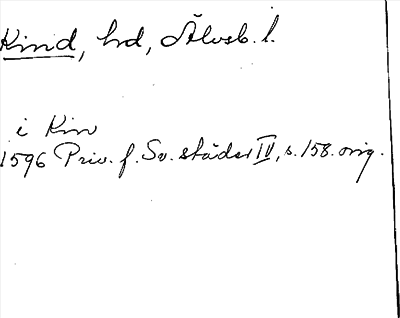 Kind, hd, Älvsb. l.
i Kin
1596 Priv. f. Sv. städer IV, s. 158. orig.